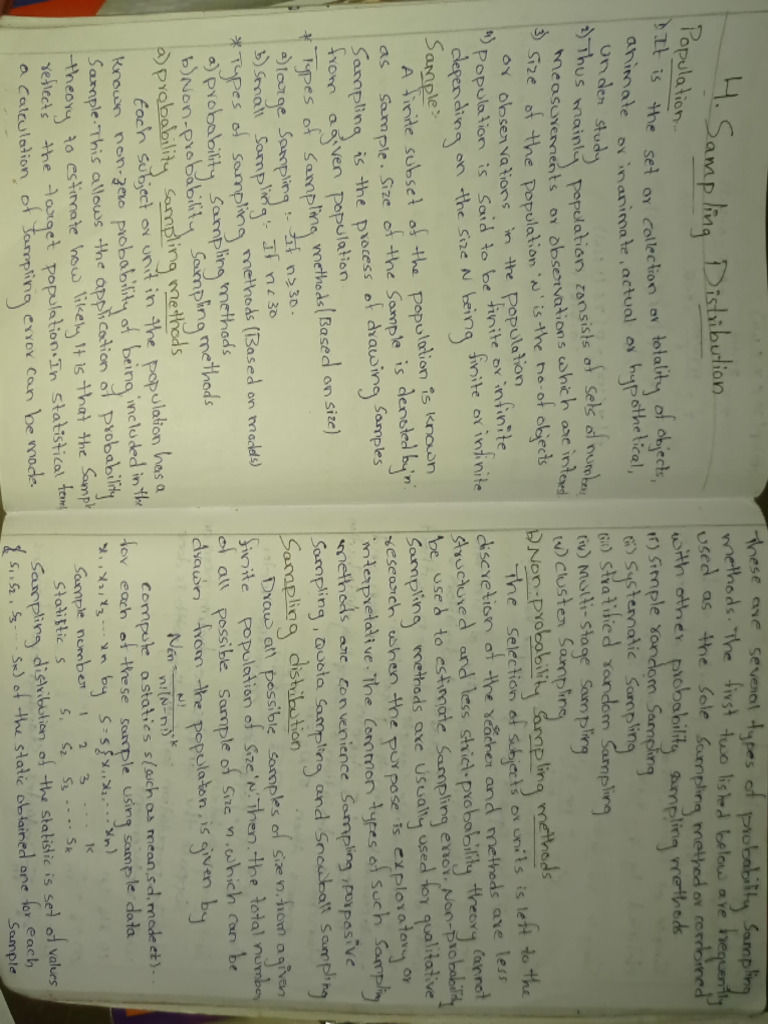 4. Sampling Distribution
Population:-
1) It is the set or collection or totality of objects,
animate or inanimate, actual or hypothetical,
under study
2) Thus mainly population consists of sets of number
measurements or observations which are interest
3) Size of the population 'N' is the no. of objects
or observations in the population
4) population is said to be finite or infinite
depending on the size N being finite or infinite
Sample:-
A finite subset of the population is known
as sample. Size of the sample is denoted by 'n'.
Sampling is the process of drawing samples
from a given population
* Types of sampling methods (Based on size)
a) large sampling :- If n ≥ 30.
b) small sampling :- If n < 30
* Types of sampling methods (Based on models)
a) probability sampling methods
b) Non-probability sampling methods
a) probability sampling methods
Each subject or unit in the population has a
known non-zero probability of being included in the
sample. This allows the application of probability
theory to estimate how likely it is that the sampl
reflects the target population. In statistical terms
a calculation of sampling error can be made.
These are several types of probability sampling
methods. The first two listed below are frequently
used as the sole sampling method or combined
with other probability sampling methods
(i) Simple random sampling
(ii) Systematic sampling
(iii) stratified random sampling
(iv) Multi-stage sampling
(v) Cluster sampling
b) Non-probability sampling methods
The selection of subjects or units is left to the
discretion of the and methods are less
structured and less strict. probability theory cannot
be used to estimate sampling error. Non-probability
sampling methods are usually used for qualitative
research when the purpose is exploratory or
interpretative. The common types of such sampling
methods are convenience sampling, purposive
sampling, Quota sampling and snowball sampling
Sampling distribution
Draw all possible samples of size n, from a given
finite population of size 'N' then, the total number
of all possible sample of size n, which can be
drawn from the population, is given by
NCn = N! / n!(N-n)! = k
compute a statics s (such as mean, s.d, mode etc)..
for each of these sample using sample data
x₁, x₂, x₃ ... xn by s = s{x₁, x₂, ... xn)
Sample number 1 2 3 .... k
statistic s s₁ s₂ s₃ .... sk
Sampling distribution of the statistic is set of values
{s₁, s₂, s₃ ... sk} of the static obtained one for each
sample